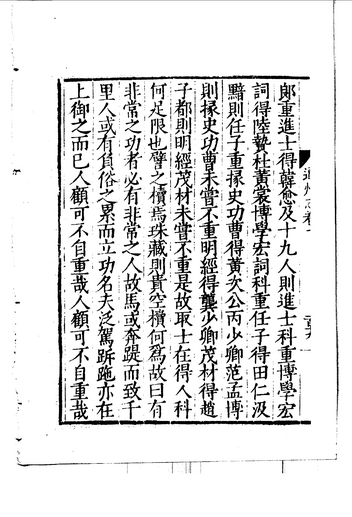 郞重進士得韓愈及十九人則進士科重博學宏
詞得陸贄杜黃裳博學宏詞科重任子得田仁汲
黯則任子重掾史功曹得黃次公丙少卿范孟博
則掾史功曹未甞不重明經得龔少卿茂材得趙
子都則明經茂材未甞不重是故取士在得人科
何足限也譬之櫝焉珠藏則貴空櫝何爲故曰有
非常之功者必有非常之人故馬或奔踶而致千
里人或有負俗之累而立功名夫泛駕跅跑亦在
上御之而已人顧可不自重哉人顧可不自重哉